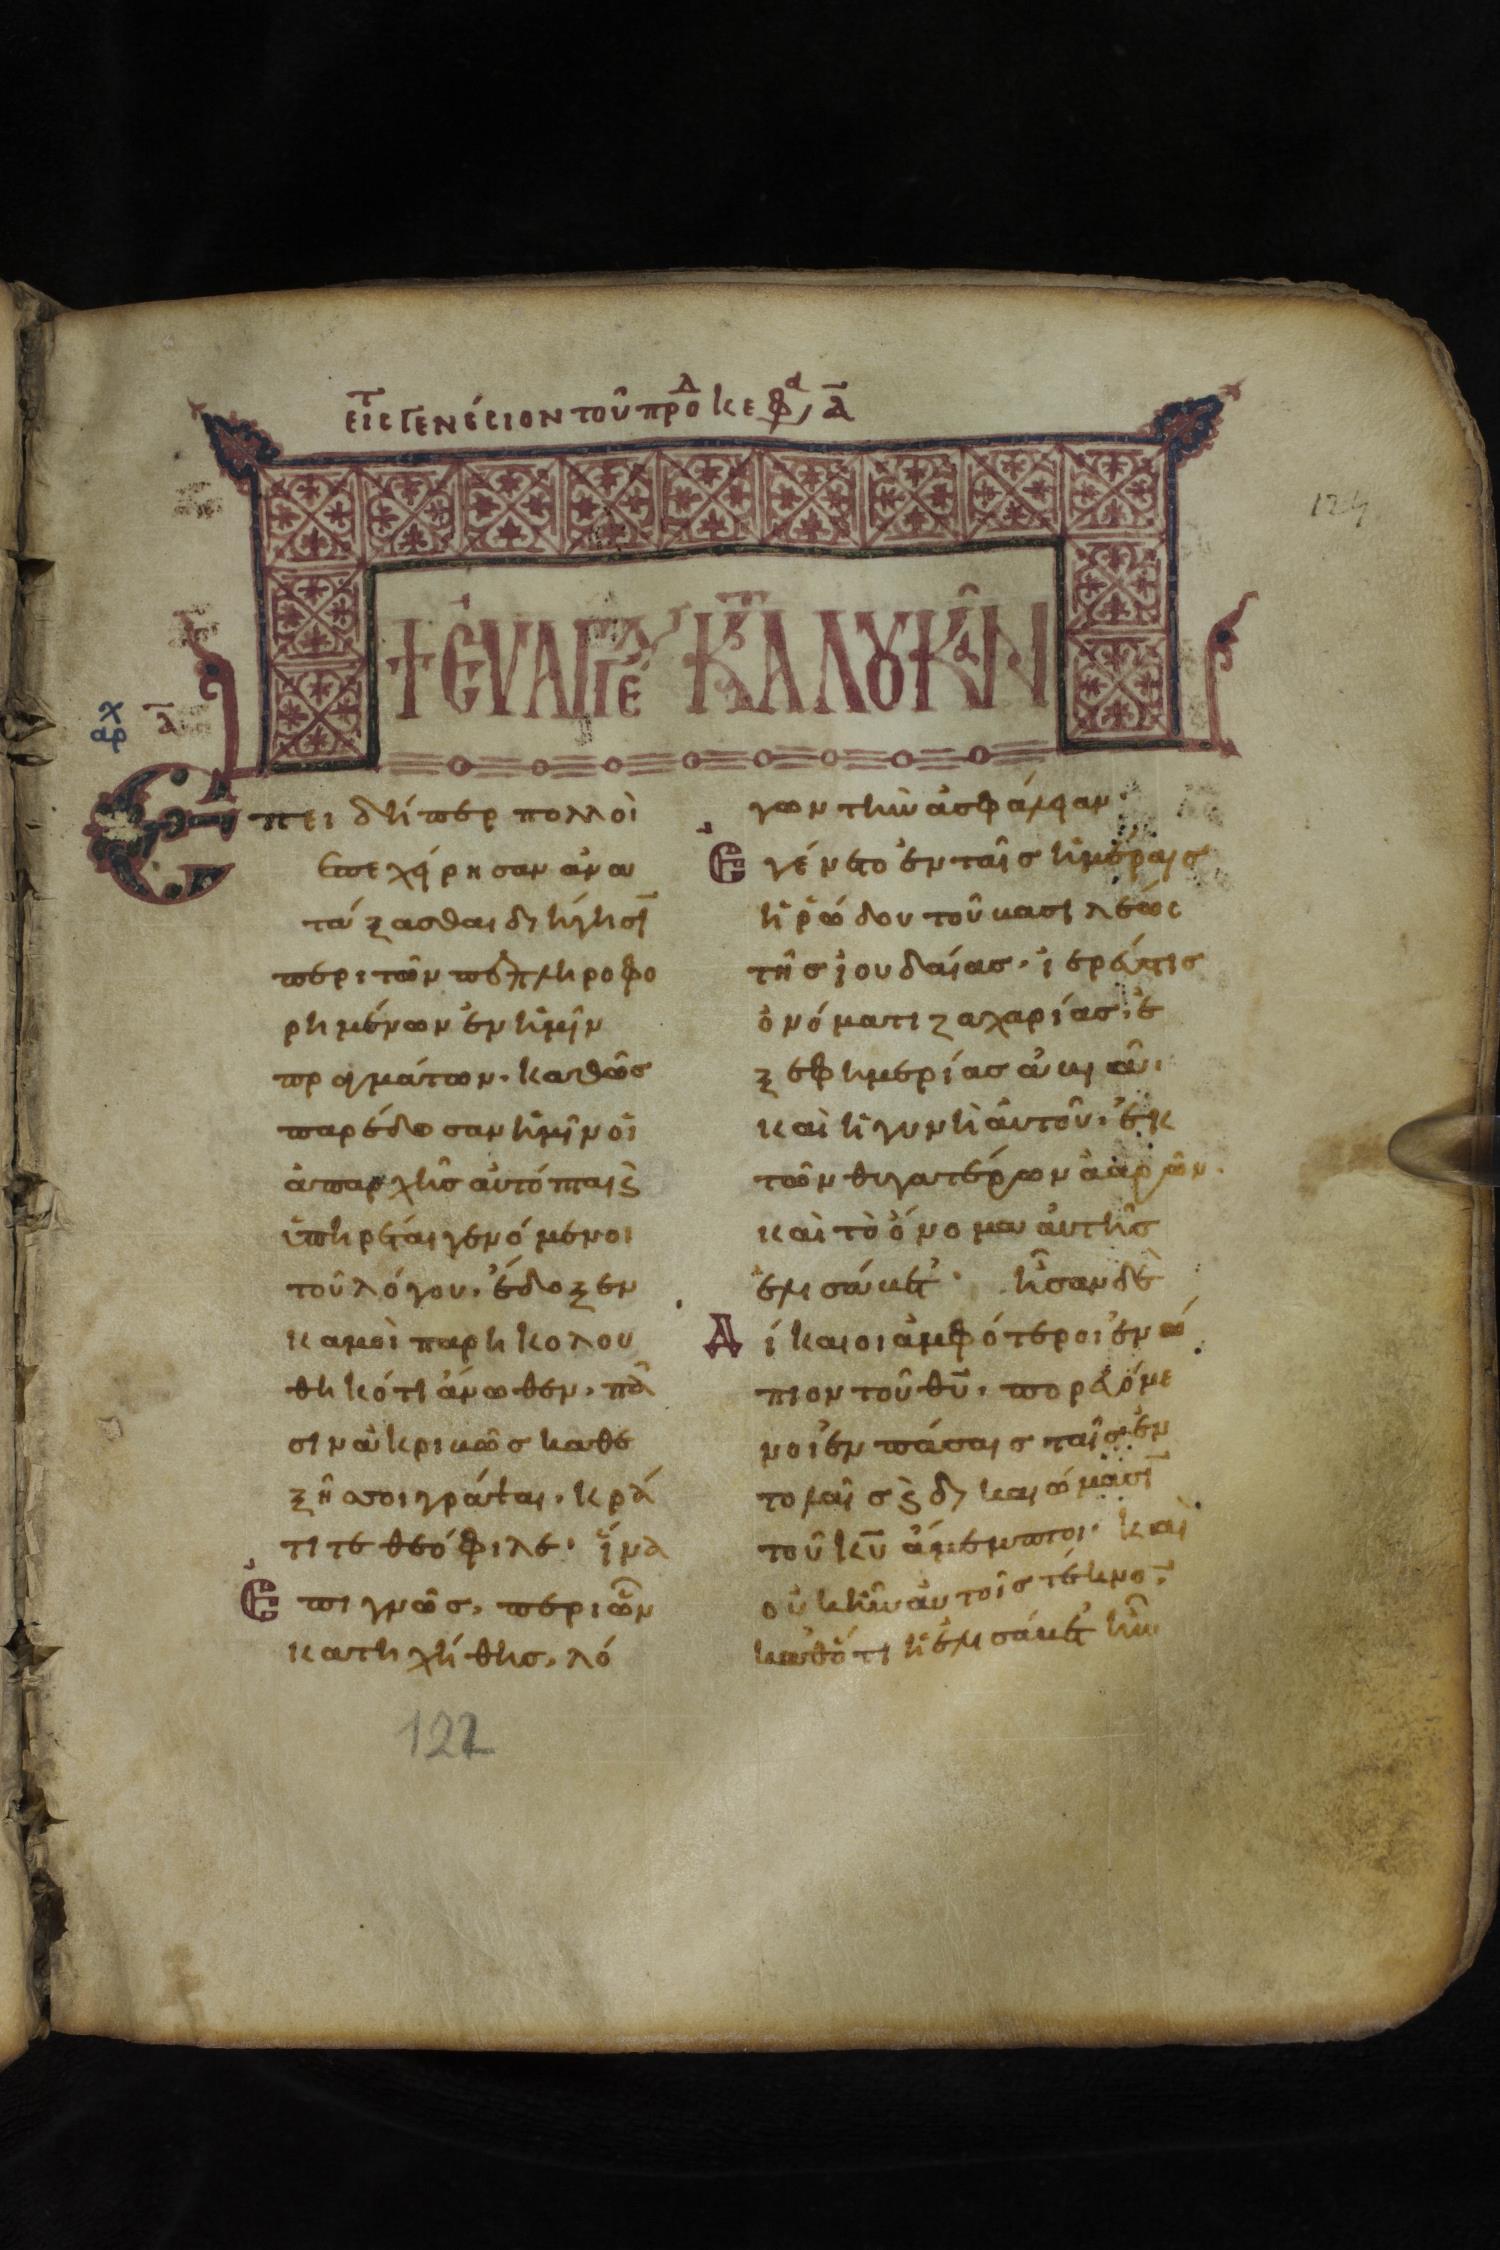 εἰς τ γενέσιον τοῦ προδ κεφα, α
124
+ ΕΥΑΓΓΕ ΚΑ ΛΟΥΚΑΝ
χ αρ α
Ἐπειδήπερ πολλοὶ
ἐπεχείρησαν ἀνα
τάξασθαι διήγησῖ
περὶ τῶν πεπληροφο
ρημένων ἐν ἡμῖν
πραγμάτων. καθὼς
παρέδοσαν ἡμῖν οἱ
ἀπαρχῆς αὐτόπται ϗ
ὑπηρέται γενόμενοι
τοῦ λόγου. ἔδοξεν
καμοὶ παρηκολου
θηκότι ἄνωθεν. πᾶ
σιν ἀκριβῶς καθε
ξῆς σοι γράψαι. κρά
τιτε θεόφιλε. ἵνα
Ἐπιγνῶς. περὶ ὧν
κατηχήθης. λό
γων τὴν ἀσφάλειαν.
Ἐγένετο ἐν ταῖς ἡμέραις
ἡρώδου τοῦ βασιλέως
τῆς ἰουδαίας. ἱερεύς τις
ὀνόματι ζαχαρίας. ἐ
ξ ἐφημερίας ἀβιά.
καὶ ἡ γυνὴ αὐτοῦ. ἐκ
τῶν θυγατέρων ἀαρών.
καὶ τὸ ὄνομα αὐτῆς
ἐλισάβετ. ἦσαν δὲ
Δίκαιοι ἀμφότεροι ἐνώ
πιον τοῦ θυ. πορευόμε
νοι ἐν πάσαις ταῖς ἐν
τολαῖς ϗ δικαιώμασῖ
τοῦ κυ ἄμεμπτοι. καὶ
οὐκ ἦν αὐτοῖς τέκνο.
καθότι ἡ ἐλισάβετ ἦν
122